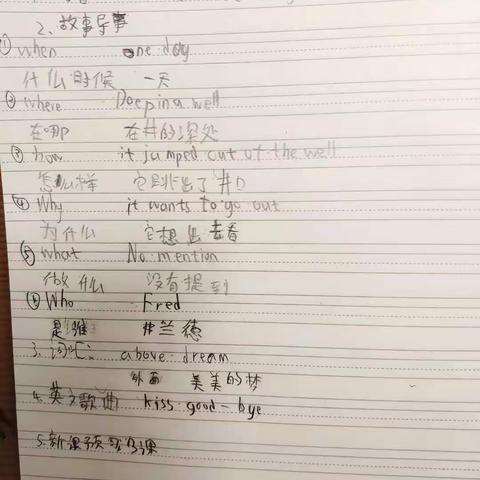 2、故事导事
① when one day
什么时候 一天
② where Deep in a well
在哪 在井的深处
③ how it jumped out of the well
怎么样 它跳出了井口
④ Why it wants to go out
为什么 它想出去看
⑤ what No mention
做什么 没有提到
⑥ Who Fred
是谁 弗兰德
3、词汇: above dream
外面 美美的梦
4、英文歌曲 kiss good-bye
5、新课预习3课